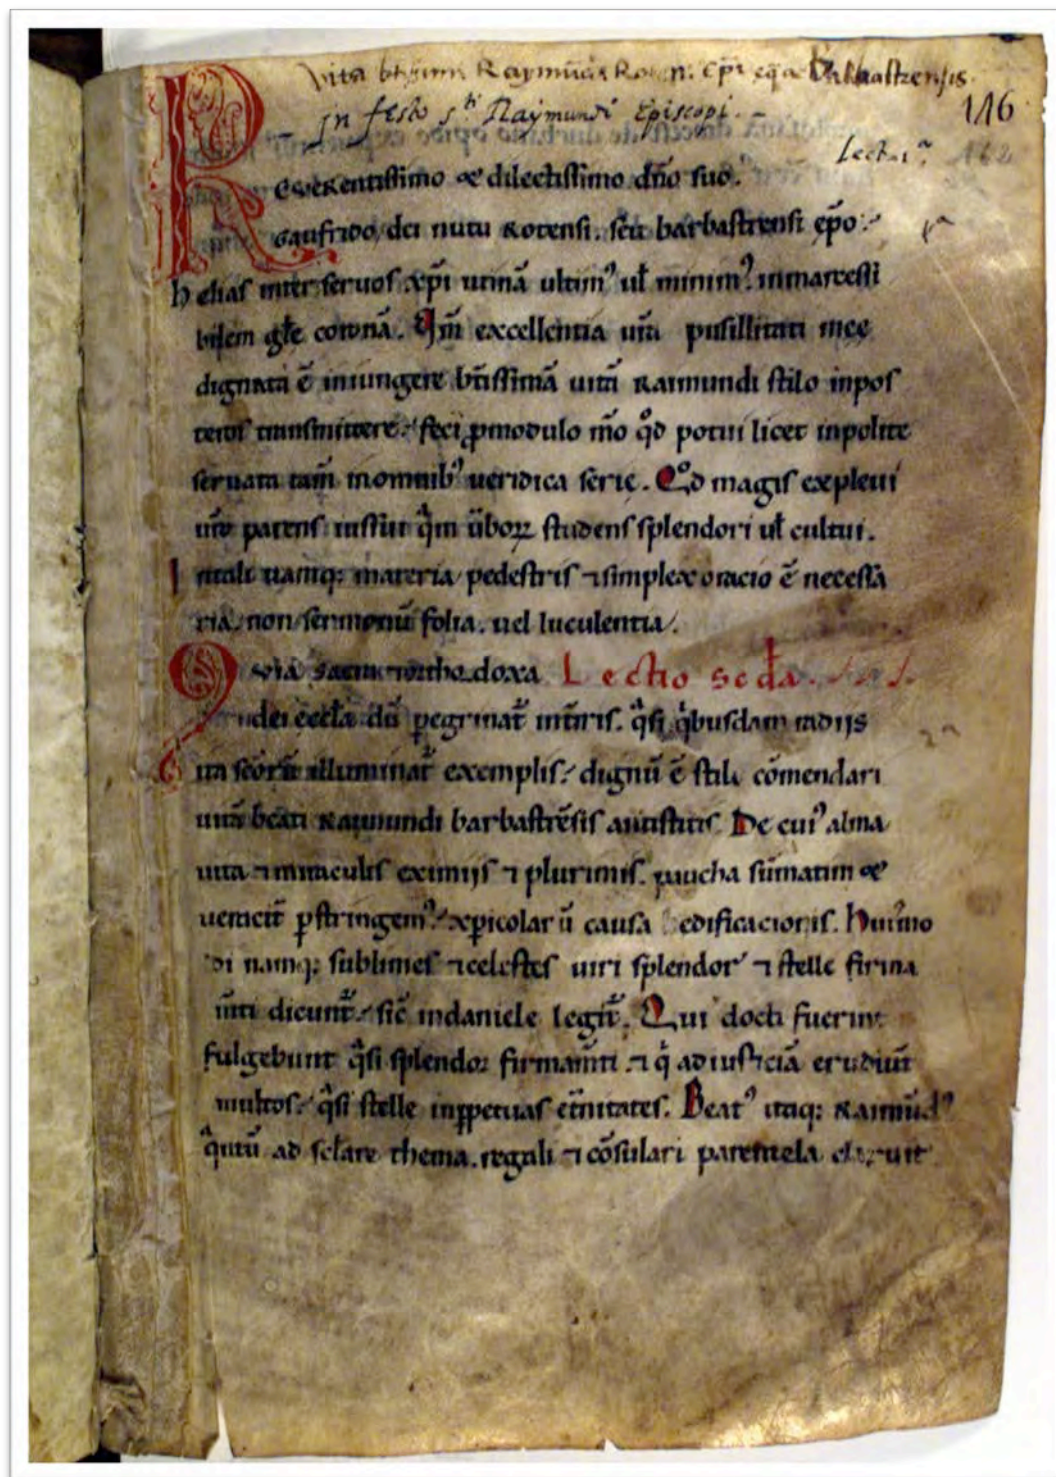 Vita btssimi Raymūdi Roten. Epi eqz Barbastrensis.
In festo sti Raymundi Episcopi.
146
Lectio 1ª
162
Reuerentissimo & dilectissimo dn̄o suo.
Gaufrido, dei nutu Rotensi. seu barbastrensi ep̄o.
helias inter seruos xp̄i utinā ultim᾿ ul̄ minim᾿. inmarcessi
bilem gl̄e coronā. Qm̄ excellentia ur̄a pusillitati meę
dignata ē iniungere bt̄issimā uitā Raimundi stilo inpos
teros transmittere. feci ꝓmodulo m̄o qͦd potui licet inpolite
seruata tam̄ inomnib᾿ ueridica serie. Qͦd magis expleui
ur̄o parens iussui qͣm ūboꝝ studens splendori ul̄ cultui.
In tali namq; materia pedestris ⁊ simplex oracio ē necessa
ria. non sermonū folia. uel luculentia.
Quia sancta ⁊ orthodoxa Lectio scd̄a.
dei eccl̄a dū ꝑegrinat᷑ int̄ris. qͣsi qͥbusdam radijs
ita sc̄orū illuminat᷑ exemplis. dignū ē stilo cōmendari
uitā beati Raimundi barbastrēsis antistitis. De cui᾿ alma
uita ⁊ miraculis eximijs ⁊ plurimis. paucha sūmatim &
ueracit᷑ ꝑstringem᾿. xp̄icolarū causa edificacionis. Hui᾿mo
di namq; sublimes ⁊ celestes uiri splendor ⁊ stelle firma
m̄ti dicunt᷑. sic̄ indaniele legit᷑. Qui docti fuerint
fulgebunt qͣsi splendor firmam̄ti. ⁊ qͥ adiusticiā erudiūt
multos. qͣsi stelle inꝑpetuas et̄nitates. Beat᾿ itaq; Raimūd᾿
qͣntū ad sc̄lare thema. regali ⁊ cōsulari parentela claruit